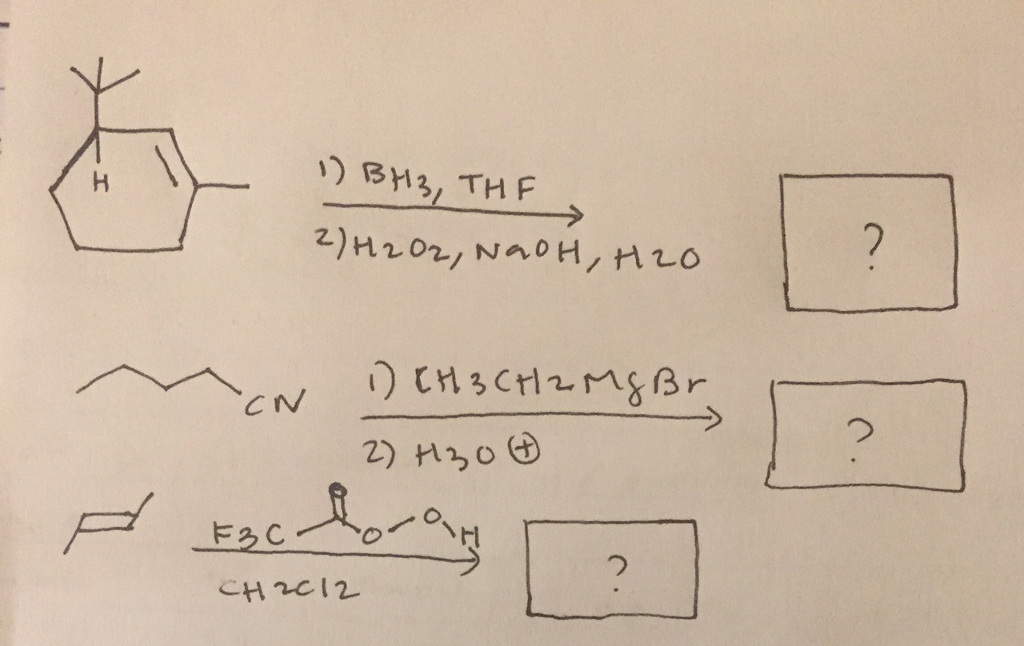 H
1) BH3, THF
2) H2O2, NaOH, H2O
?
CN
1) CH3CH2MgBr
2) H3O⊕
?
F3C O O O H
CH2Cl2
?